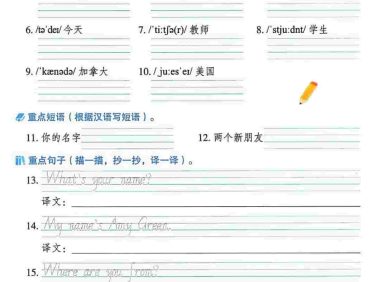 6. /təˈdeɪ/ 今天 7. /ˈtiːtʃə(r)/ 教师 8. /ˈstjuːdnt/ 学生
9. /ˈkænədə/ 加拿大 10. /ˌjuːesˈeɪ/ 美国
重点短语（根据汉语写短语）。
11. 你的名字 12. 两个新朋友
重点句子（描一描，抄一抄，译一译）。
13. What's your name?
译文：
14. My name's Amy Green.
译文：
15. Where are you from?